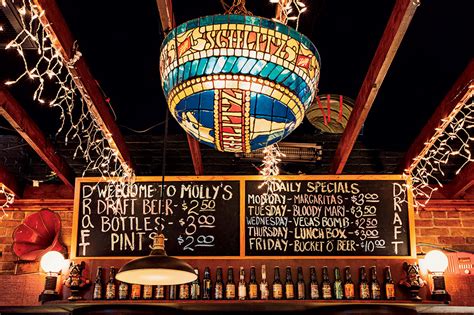 SCHLITZ
DRAFT
WELCOME TO MOLLY'S
DRAFT BEER - $2.50
BOTTLES - $3.00
PINTS - $2.00
DAILY SPECIALS
MONDAY - MARGARITAS - $3.00
TUESDAY - BLOODY MARY - $3.50
WEDNESDAY - VEGAS BOMB - $5.00
THURSDAY - LUNCH BOX - $4.00
FRIDAY - BUCKET O' BEER - $10.00
DRAFT